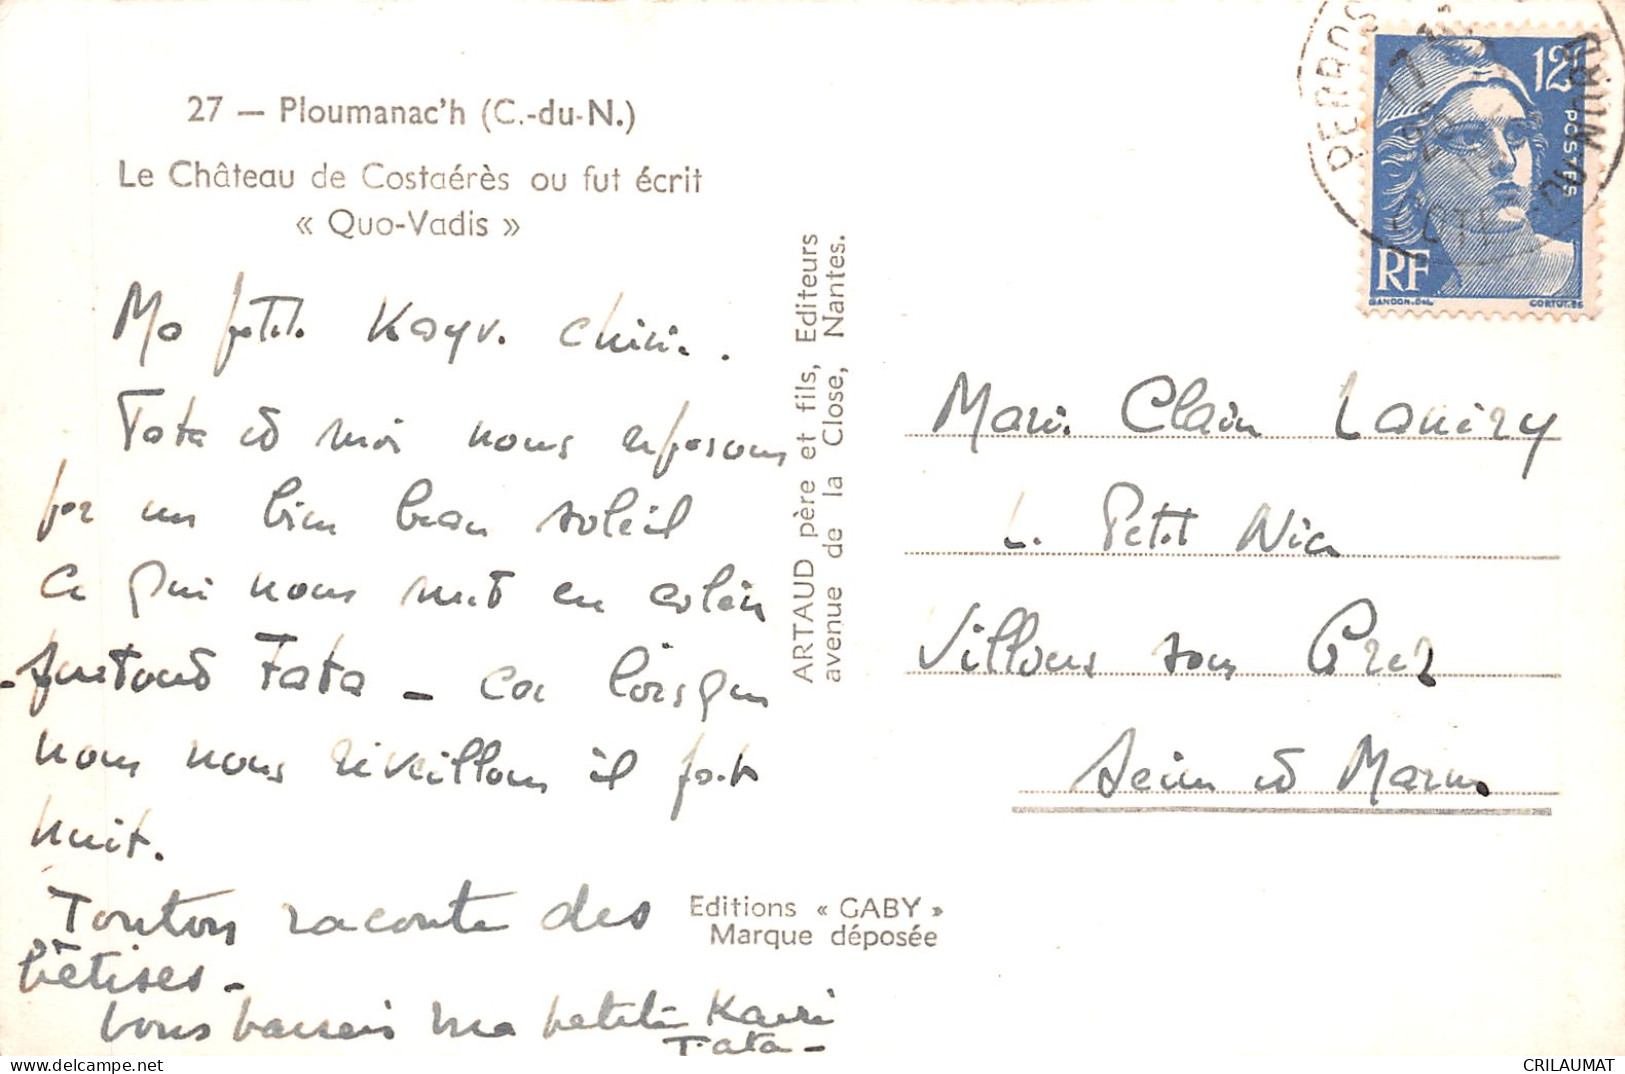 27 — Ploumanac'h (C.-du-N.)
Le Château de Costaérès ou fut écrit
« Quo-Vadis »
Ma petite chérie.
Tata et moi nous reposons
par un bien beau soleil
Ce qui nous met en colère
surtout Tata - car lorsque
nous nous réveillons il fait
nuit.
Tonton raconte des
bêtises -
bons baisers ma petite
Tata -
ARTAUD père et fils, Editeurs
avenue de la Close, Nantes.
Editions « GABY »
Marque déposée
PERROS
COTES DU NORD
12F
POSTES
RF
GANDON-DEL
CORTOT-SC
Marie Claire
Le Petit Nid
sous
Seine et Marne
CRILAUMAT